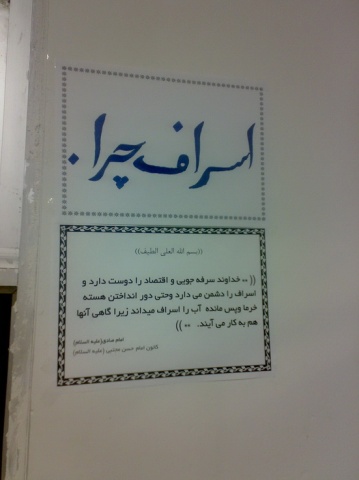 اسراف چرا .
((بسم الله العلی الطیف))
(( ** خداوند سرفه جویی و اقتصاد را دوست دارد و
اسراف را دشمن می دارد وحتی دور انداختن هسته
خرما وپس مانده آب را اسراف میداند زیرا گاهی آنها
هم به کار می آیند. ** ))
امام صادق(علیه السلام)
کانون امام حسن مجتبی (علیه السلام)